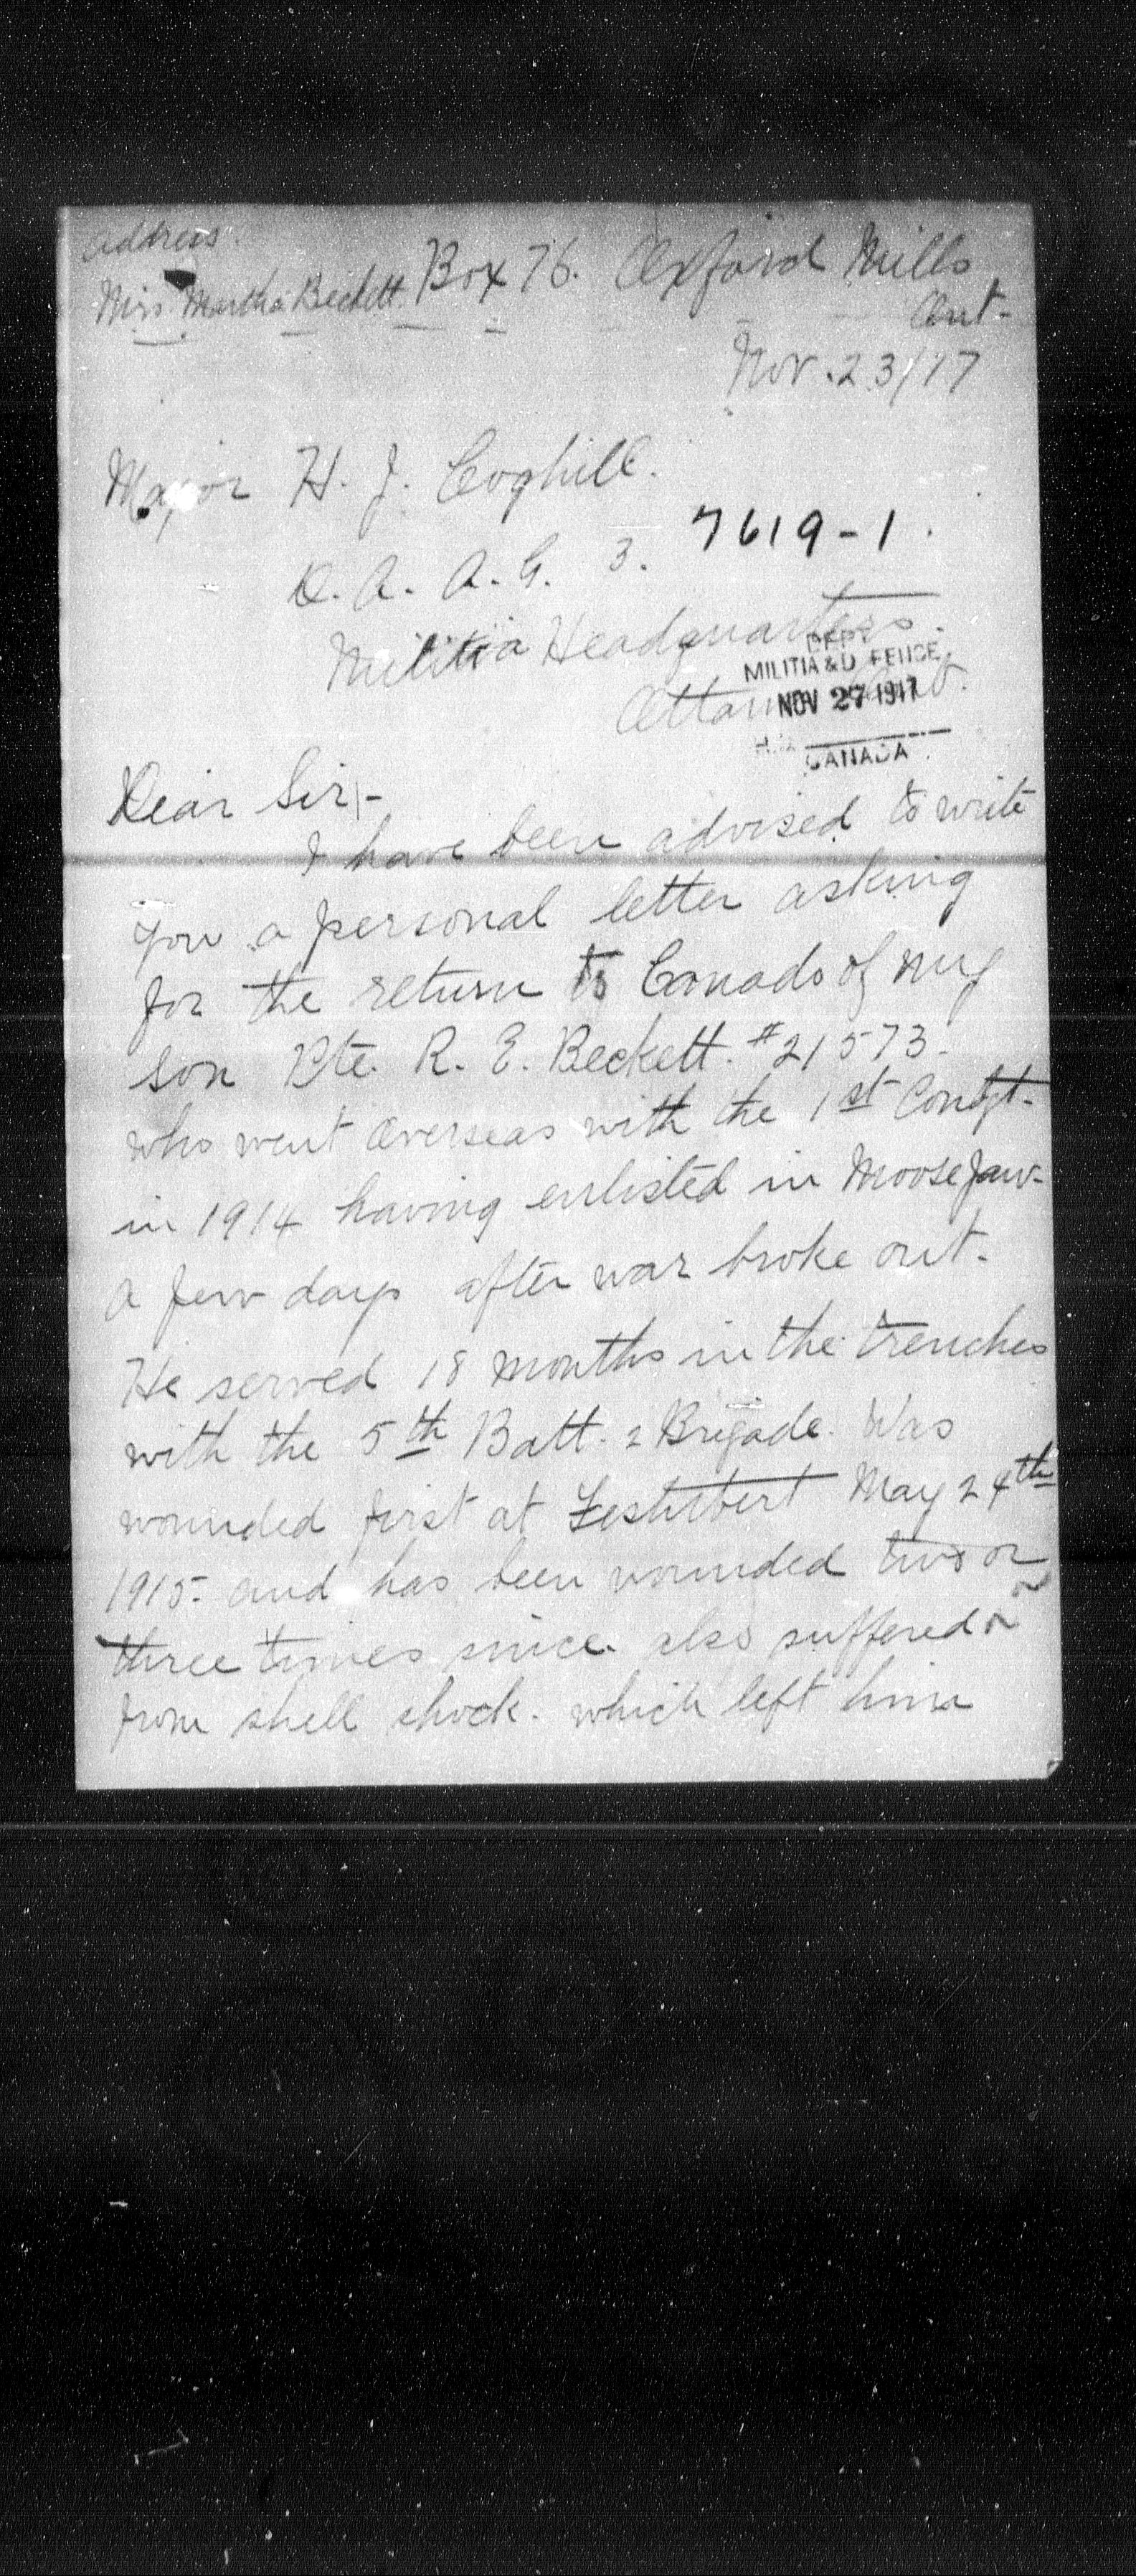 Address.
Mrs. Martha Beckett. Box 76. Oxford Mills
Ont-
Nov. 23/17
Major H. J. Coghill.
7619-1.
D. A. A. G. 3.
Militia Headquarters.
DEPT
MILITIA & DEFENCE
Ottawa Ont.
NOV 27 1917
H.Q.
CANADA
Dear Sir,-
I have been advised to write
you a personal letter asking
for the return to Canada of my
son Pte. R. E. Beckett. #21573.
who went overseas with the 1st Contgt-
in 1914 having enlisted in Moose Jaw-
a few days after war broke out.
He served 18 months in the trenches
with the 5th Batt. 2 Brigade. Was
wounded first at Festubert May 24th
1915- and has been wounded two or
three times since. also suffered
from shell shock. which left him